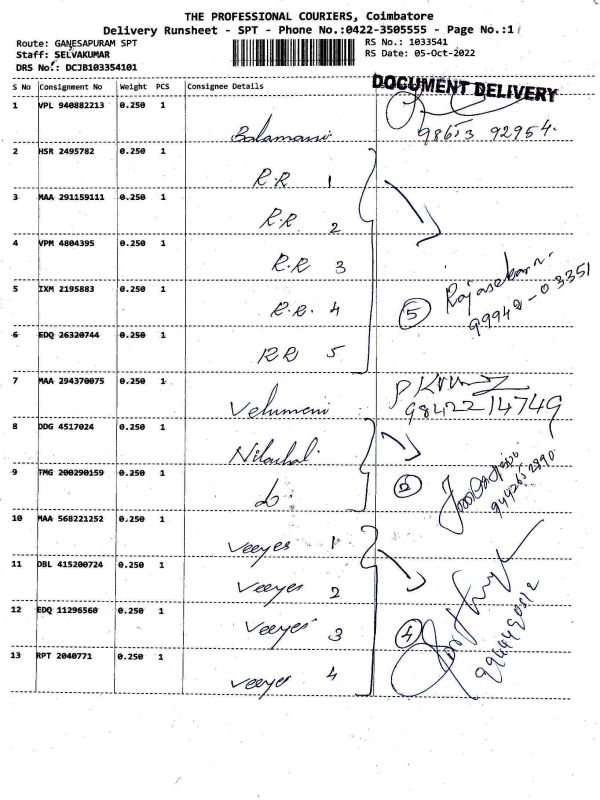 THE PROFESSIONAL COURIERS, Coimbatore
Delivery Runsheet - SPT - Phone No.:0422-3505555 - Page No.:1
Route: GANESAPURAM SPT
RS No.: 1033541
Staff: SELVAKUMAR
RS Date: 05-Oct-2022
DRS No.: DCJB103354101
S No Consignment No Weight PCS Consignee Details
DOCUMENT DELIVERY
1 VPL 940882213 0.250 1
Balamani
98653 92954
2 HSR 2495782 0.250 1
R.R 1
3 MAA 291159111 0.250 1
R.R. 2
4 VPM 4804395 0.250 1
R.R 3
5 IXM 2195883 0.250 1
R.R. 4
5 Rajasekar
99942-03351
6 EDQ 26320744 0.250 1
RR 5
7 MAA 294370075 0.250 1
Velumani
9842214749
8 DDG 4517024 0.250 1
Nilachal
9 TMG 200290159 0.250 1
10 MAA 568221252 0.250 1
Veeyes 1
11 DBL 415200724 0.250 1
Veeyes 2
12 EDQ 11296560 0.250 1
Veeyes 3
4
13 RPT 2040771 0.250 1
Veeyes 4